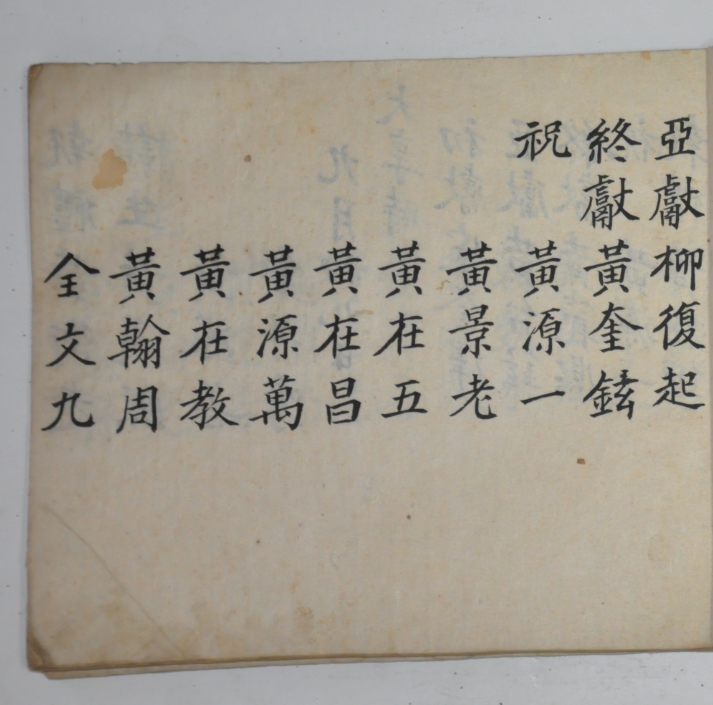 亞獻柳復起
終獻黃奎鉉
祝黃源一
黃景老
黃在五
黃在昌
黃源萬
黃在教
黃翰周
全文九